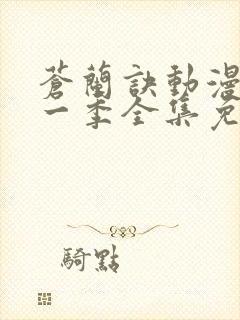 蒼蘭訣動漫
一季全集免
騎點